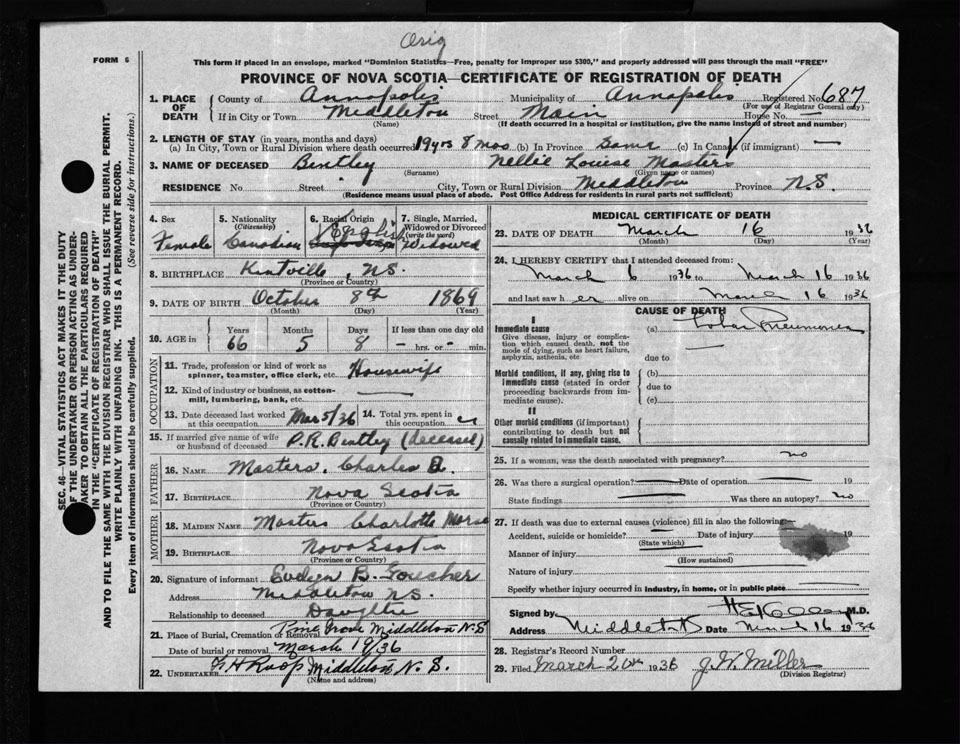 Orig
FORM 6
This form if placed in an envelope, marked "Dominion Statistics—Free, penalty for improper use $300," and properly addressed will pass through the mail "FREE"
PROVINCE OF NOVA SCOTIA—CERTIFICATE OF REGISTRATION OF DEATH
1. PLACE OF DEATH County of Annapolis Municipality of Annapolis Registered No. 687
(For use of Registrar General only)
If in City or Town Middleton Street Main House No. —
(Name) (If death occurred in a hospital or institution, give the name instead of street and number)
2. LENGTH OF STAY (in years, months and days)
(a) In City, Town or Rural Division where death occurred 19 yrs 8 mos (b) In Province Same (c) In Canada (if immigrant) —
3. NAME OF DECEASED Bentley Nellie Louise Masters
(Surname) (Given name or names)
RESIDENCE No Street City, Town or Rural Division Middleton Province N.S.
(Residence means usual place of abode. Post Office Address for residents in rural parts not sufficient)
4. Sex Female
5. Nationality (Citizenship) Canadian
6. Racial Origin English
7. Single, Married, Widowed or Divorced (write the word) Widowed
8. BIRTHPLACE Kentville, N.S.
(Province or Country)
9. DATE OF BIRTH October 8th 1869
(Month) (Day) (Year)
10. AGE in Years Months Days If less than one day old
66 5 8 — hrs. or — min.
OCCUPATION
11. Trade, profession or kind of work as spinner, teamster, office clerk, etc. Housewife
12. Kind of industry or business, as cotton-mill, lumbering, bank, etc. —
13. Date deceased last worked at this occupation Mar 5/36 14. Total yrs. spent in this occupation
15. If married give name of wife or husband of deceased P.R. Bentley (deceased)
FATHER
16. NAME Masters, Charles
17. BIRTHPLACE Nova Scotia
(Province or Country)
MOTHER
18. MAIDEN NAME Masters Charlotte Morse
19. BIRTHPLACE Nova Scotia
(Province or Country)
20. Signature of informant Evelyn B. Goucher
Address Middleton N.S.
Relationship to deceased Daughter
21. Place of Burial, Cremation or Removal Pine Grove Middleton N.S
Date of burial or removal March 19/36
22. UNDERTAKER Roop Middleton N.S.
(Name and address)
MEDICAL CERTIFICATE OF DEATH
23. DATE OF DEATH March 16 1936
(Month) (Day) (Year)
24. I HEREBY CERTIFY that I attended deceased from:
March 6 1936 to March 16 1936
and last saw her alive on March 16 1936
CAUSE OF DEATH
I
Immediate cause (a) Lobar Pneumonia
Give disease, injury or complication which caused death, not the mode of dying, such as heart failure, asphyxia, asthenia, etc
due to
Morbid conditions, if any, giving rise to immediate cause (stated in order proceeding backwards from immediate cause).
(b)
due to
(c)
II
Other morbid conditions (if important) contributing to death but not causally related to immediate cause.
25. If a woman, was the death associated with pregnancy? no
26. Was there a surgical operation? — Date of operation — 19
State findings — Was there an autopsy? no
27. If death was due to external causes (violence) fill in also the following—
Accident, suicide or homicide? Date of injury 19
(State which)
Manner of injury
(How sustained)
Nature of injury
Specify whether injury occurred in industry, in home, or in public place
Signed by M.D.
Address Middleton Date March 16 1936
28. Registrar's Record Number
29. Filed March 20th 1936 J.W. Miller
(Division Registrar)
SEC. 46—VITAL STATISTICS ACT MAKES IT THE DUTY
OF THE UNDERTAKER OR PERSON ACTING AS UNDER-
TAKER TO OBTAIN ALL THE PARTICULARS REQUIRED
IN THE "CERTIFICATE OF REGISTRATION OF DEATH"
AND TO FILE THE SAME WITH THE DIVISION REGISTRAR WHO SHALL ISSUE THE BURIAL PERMIT.
WRITE PLAINLY WITH UNFADING INK. THIS IS A PERMANENT RECORD.
Every item of Information should be carefully supplied. (See reverse side for instructions.)